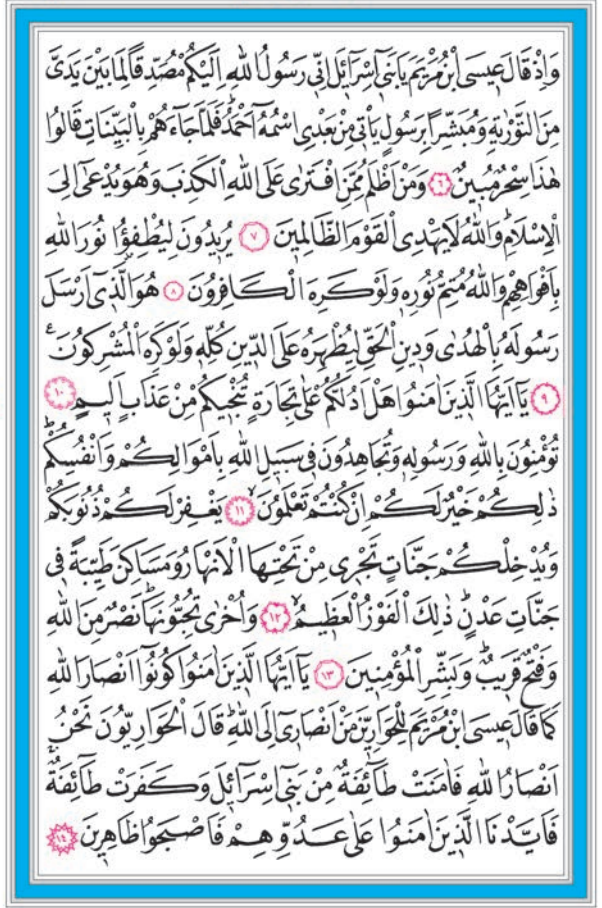 وَاِذْ قَالَ عٖيسَى ابْنُ مَرْيَمَ يَا بَنٖٓي اِسْرَٓائٖلَ اِنّٖي رَسُولُ اللّٰهِ اِلَيْكُمْ مُصَدِّقًا لِمَا بَيْنَ يَدَيَّ
مِنَ التَّوْرٰيةِ وَمُبَشِّرًا بِرَسُولٍ يَأْتٖي مِنْ بَعْدِي اسْمُهُٓ اَحْمَدُۜ فَلَمَّا جَٓاءَهُمْ بِالْبَيِّنَاتِ قَالُوا
هٰذَا سِحْرٌ مُبٖينٌ ﴿٦﴾ وَمَنْ اَظْلَمُ مِمَّنِ افْتَرٰى عَلَى اللّٰهِ الْكَذِبَ وَهُوَ يُدْعٰٓى اِلَى
الْاِسْلَامِۜ وَاللّٰهُ لَا يَهْدِي الْقَوْمَ الظَّالِمٖينَ ﴿٧﴾ يُرٖيدُونَ لِيُطْفِؤُ۫ا نُورَ اللّٰهِ
بِاَفْوَاهِهِمْ وَاللّٰهُ مُتِمُّ نُورِهٖ وَلَوْ كَرِهَ الْكَافِرُونَ ﴿٨﴾ هُوَ الَّذٖٓي اَرْسَلَ
رَسُولَهُ بِالْهُدٰى وَدٖينِ الْحَقِّ لِيُظْهِرَهُ عَلَى الدّٖينِ كُلِّهٖ وَلَوْ كَرِهَ الْمُشْرِكُونَ ع
﴿٩﴾ يَٓا اَيُّهَا الَّذٖينَ اٰمَنُوا هَلْ اَدُلُّكُمْ عَلٰى تِجَارَةٍ تُنْجٖيكُمْ مِنْ عَذَابٍ اَلٖيمٍ ﴿١٠﴾
تُؤْمِنُونَ بِاللّٰهِ وَرَسُولِهٖ وَتُجَاهِدُونَ فٖي سَبٖيلِ اللّٰهِ بِاَمْوَالِكُمْ وَاَنْفُسِكُمْۜ
ذٰلِكُمْ خَيْرٌ لَكُمْ اِنْ كُنْتُمْ تَعْلَمُونَۙ ﴿١١﴾ يَغْفِرْ لَكُمْ ذُنُوبَكُمْ
وَيُدْخِلْكُمْ جَنَّاتٍ تَجْرٖي مِنْ تَحْتِهَا الْاَنْهَارُ وَمَسَاكِنَ طَيِّبَةً فٖي
جَنَّاتِ عَدْنٍۜ ذٰلِكَ الْفَوْزُ الْعَظٖيمُۙ ﴿١٢﴾ وَاُخْرٰى تُحِبُّونَهَاۜ نَصْرٌ مِنَ اللّٰهِ
وَفَتْحٌ قَرٖيبٌۜ وَبَشِّرِ الْمُؤْمِنٖينَ ﴿١٣﴾ يَٓا اَيُّهَا الَّذٖينَ اٰمَنُوا كُونُٓوا اَنْصَارَ اللّٰهِ
كَمَا قَالَ عٖيسَى ابْنُ مَرْيَمَ لِلْحَوَارِيّٖنَ مَنْ اَنْصَارٖٓي اِلَى اللّٰهِۜ قَالَ الْحَوَارِيُّونَ نَحْنُ
اَنْصَارُ اللّٰهِ فَاٰمَنَتْ طَٓائِفَةٌ مِنْ بَنٖٓي اِسْرَٓائٖلَ وَكَفَرَتْ طَٓائِفَةٌۚ
فَاَيَّدْنَا الَّذٖينَ اٰمَنُوا عَلٰى عَدُوِّهِمْ فَاَصْبَحُوا ظَاهِرٖينَ ﴿١٤﴾